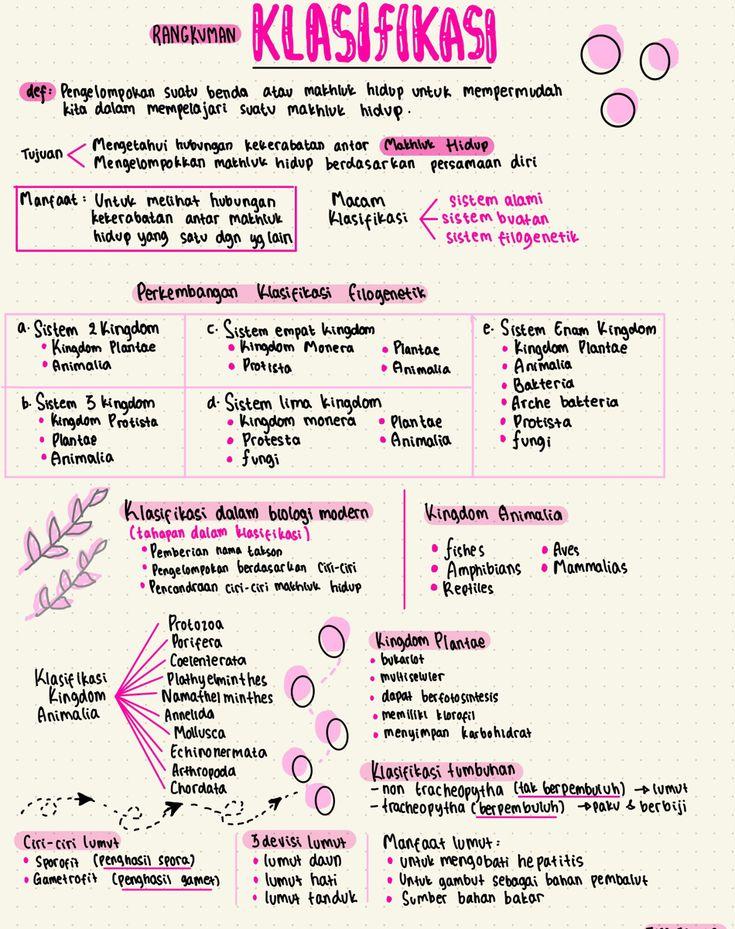 RANGKUMAN KLASIFIKASI
def: Pengelompokan suatu benda atau makhluk hidup untuk mempermudah
kita dalam mempelajari suatu makhluk hidup.
Tujuan
Mengetahui hubungan kekerabatan antar Makhluk Hidup
Mengelompokkan makhluk hidup berdasarkan persamaan diri
Manfaat: Untuk melihat hubungan
kekerabatan antar makhluk
hidup yang satu dgn yg lain
Macam
Klasifikasi
sistem alami
sistem buatan
sistem filogenetik
Perkembangan Klasifikasi filogenetik
a. Sistem 2 Kingdom
• Kingdom Plantae
• Animalia
b. Sistem 3 kingdom
• Kingdom Protista
• Plantae
• Animalia
c. Sistem empat kingdom
• Kingdom Monera
• Protista
• Plantae
• Animalia
d. Sistem lima kingdom
• Kingdom monera
• Protesta
• fungi
• Plantae
• Animalia
e. Sistem Enam Kingdom
• Kingdom Plantae
• Animalia
• Bakteria
• Arche bakteria
• Protista
• fungi
Klasifikasi dalam biologi modern
(tahapan dalam klasifikasi)
• Pemberian nama takson
• Pengelompokan berdasarkan ciri-ciri
• Pencandraan ciri-ciri makhluk hidup
Kingdom Animalia
• fishes
• Amphibians
• Reptiles
• Aves
• Mammalias
Klasifikasi
Kingdom
Animalia
Protozoa
Porifera
Coelenterata
Plathyelminthes
Namathelminthes
Annelida
Mollusca
Echinonermata
Arthropoda
Chordata
Kingdom Plantae
• eukariot
• multiseluler
• dapat berfotosintesis
• memiliki klorofil
• menyimpan karbohidrat
Klasifikasi tumbuhan
- non tracheopytha (tak berpembuluh) → lumut
- tracheopytha (berpembuluh) → paku & berbiji
Ciri-ciri lumut
• Sporofit (penghasil spora)
• Gametrofit (penghasil gamet)
3 devisi lumut
• lumut daun
• lumut hati
• lumut tanduk
Manfaat lumut:
• untuk mengobati hepatitis
• Untuk gambut sebagai bahan pembalut
• Sumber bahan bakar